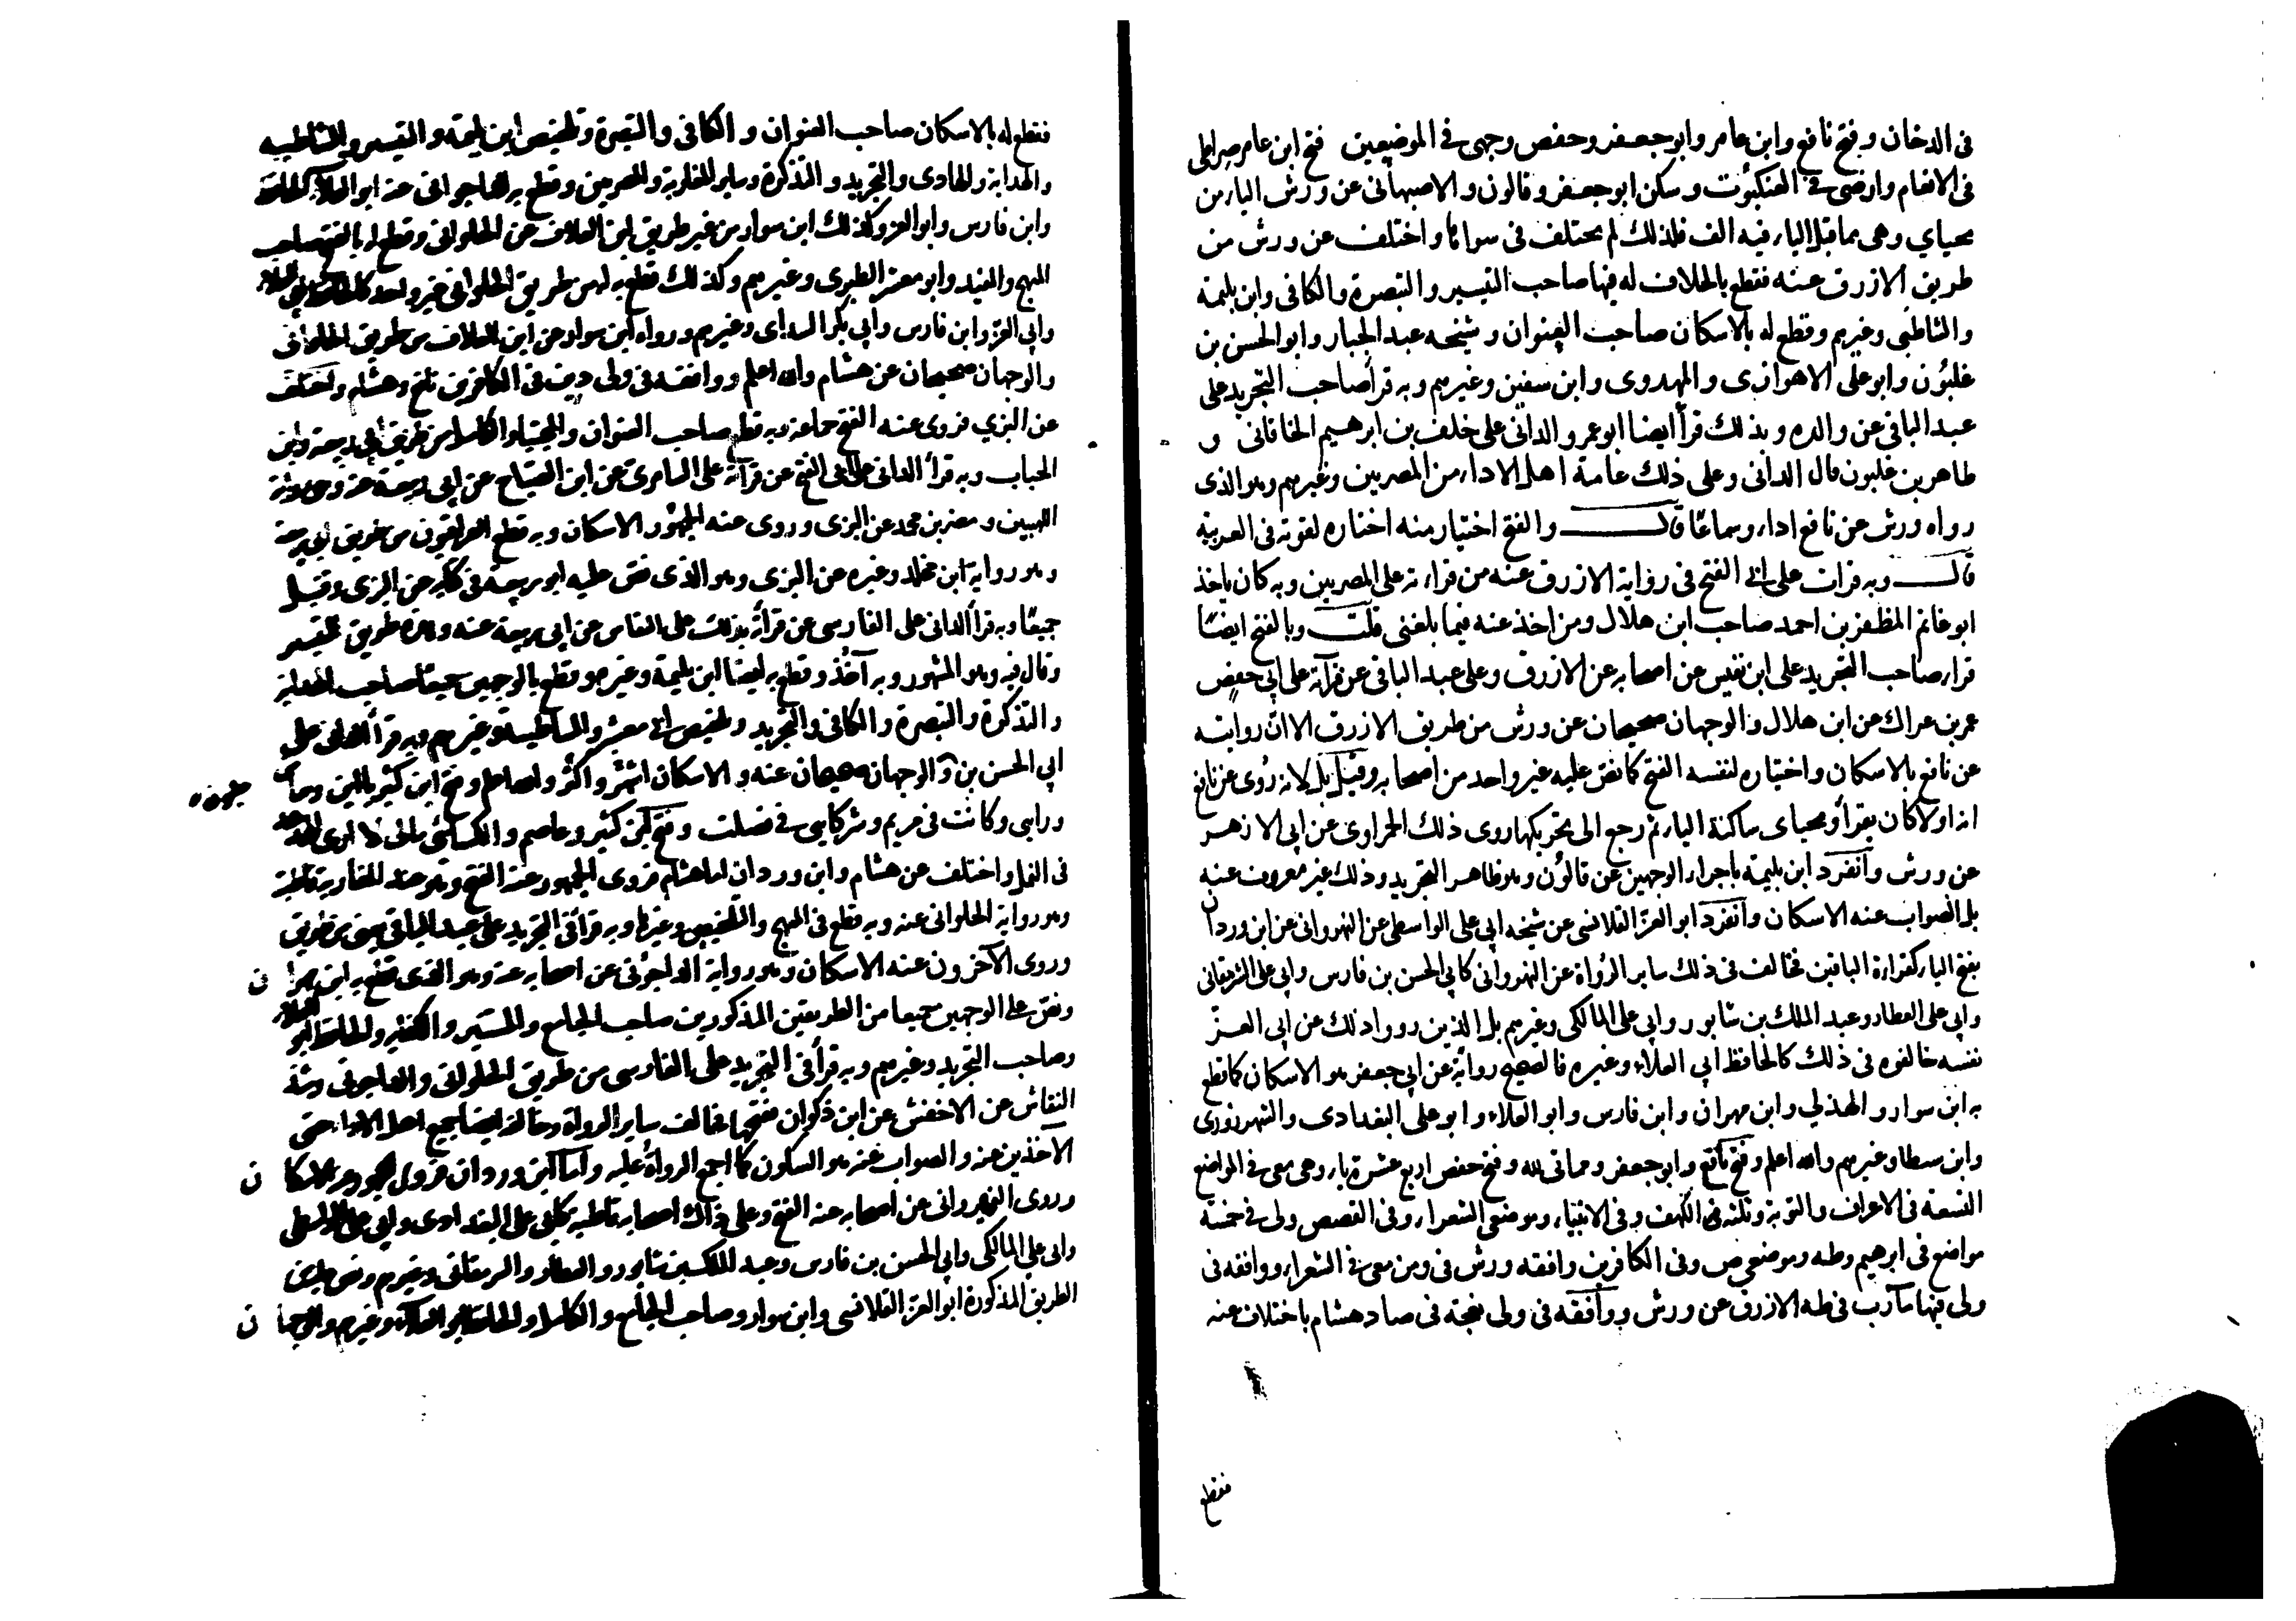 فى الدخان وفتح نافع وابن عامر وابو جعفر وحفص وجهى فى الموضعين فتح ابن عامر صراطى
فى الانعام وارضى فى العنكبوت وسكن ابو جعفر وقالون والاصبهانى عن ورش اليا من
محياي وهى مما قبل اليا فيه الف فلذلك لم يختلف فى سواها واختلف عن ورش من
طريق الازرق عنه فقطع بالخلاف له فيها صاحب التيسير والتبصرة والكافى وابن بليمة
والشاطبى وغيرهم وقطع له بالاسكان صاحب العنوان وشيخه عبد الجبار وابو الحسن بن
غلبون وابو على الاهوازى والمهدوى وابن سفين وغيرهم وبه قرأ صاحب التجريد على
عبد الباقى عن والده وبذلك قرأ ايضا ابو عمرو الدانى على خلف بن ابرهيم الخاقانى و
طاهر بن غلبون قال الدانى وعلى ذلك عامة اهل الاداء من المصريين وغيرهم وهو الذى
رواه ورش عن نافع اداء وسماعا قال والفتح اختيار منه اختاره لقوته فى العربية
قال وبه قرات على ابى الفتح فى رواية الازرق عنه من قراءته على المصريين وبه كان ياخذ
ابو غانم المظفر بن احمد صاحب ابن هلال ومن اخذ عنه فيما بلغنى قلت وبالفتح ايضا
قراء صاحب التجريد على ابن نفيس عن اصحابه عن الازرق وعلى عبد الباقى عن قرآته على ابى حفص
عمر بن عراك عن ابن هلال والوجهان صحيحان عن ورش من طريق الازرق الا ان روايته
عن نافع بالاسكان واختياره لنفسه الفتح كما نص عليه غير واحد من اصحابه وقيل بل لانه روى عن نافع
انه اولا كان يقرأ ومحياى ساكنة الياء ثم رجع الى تحريكها روى ذلك الحمراوى عن ابى الازهر
عن ورش وانفرد ابن بليمة باجراء الوجهين عن قالون وهو ظاهر التجريد وذلك غير معروف عنه
بل الصواب عنه الاسكان وانفرد ابو العز القلانسى عن شيخه ابى على الواسطى عن النهروانى عن ابن وردان
بفتح الياء كقراءة الباقين فخالف فى ذلك ساير الرواة عن النهروانى كابى الحسن بن فارس وابى على الشرمقانى
وابى على العطار وعبد الملك بن شابور وابى على المالكى وغيرهم بل الذين رووا ذلك عن ابى العز
نفسه خالفوه فى ذلك كالحافظ ابى العلاء وغيره فالصحيح رواية عن ابى جعفر هو الاسكان كما قطع
به ابن سوار والهذلي وابن مهران وابن فارس وابو العلاء وابو على البغدادى والشهرزورى
وابن سطا وغيرهم والله اعلم وفتح نافع وابو جعفر ومماتى لله وفتح حفص اربع عشرة ياء وهى معى فى المواضع
التسعة فى الاعراف والتوبة وثلثة فى الكهف وفى الانبياء وموضعى الشعراء وفى القصص ولى فى خمسة
مواضع فى ابرهيم وطه وموضعى ص وفى الكافرين وافقه ورش فى ومن معى فى الشعراء ووافقه فى
ولى فيها مآرب فى طه الازرق عن ورش ووافقه فى ولى نعجة فى صاد هشام باختلاف عنه
فقطع
فقطع له بالاسكان صاحب العنوان والكافى والتبصرة وتلخيص ابن بليمة والتيسير والشاطبيه
والهداية والهادى والتجريد والتذكرة وساير المغاربة والمصريين وقطع به للداجوانى عنه ابو العلا الحافظ
وابن فارس وابو العز وكذلك ابن سوار من غير طريق ابن العلاف عن الحلوانى وقطع له بالفتح صاحب
المبهج والمفيد وابو معشر الطبرى وغيرهم وكذلك قطع به له من طريق الحلوانى غير واحد كالحافظ ابى العلاء
وابى العز وابن فارس وابى بكر الشذاى وغيرهم ورواه ابن سوار عن ابن العلاف من طريق الحلوانى
والوجهان صحيحان عن هشام والله اعلم ووافقه فى ولى دين فى الكافرين نافع وهشام واختلف
عن البزي فروى عنه الفتح جماعة وبه قطع صاحب العنوان والمجتبى والكامل من طريق ابى ربيعة وابن
الحباب وبه قرأ الدانى على ابى الفتح عن قرآته على السامرى عن ابن الصباح عن ابى ربيعة عنه وهى رواية
اللهبيين ومضر بن محمد عن البزى وروى عنه الجمهور الاسكان وبه قطع العراقيون من طريق ابى ربيعة
وهو رواية ابن مخلد وغيره عن البزى وهو الذى نص عليه ابو ربيعة فى كتابه عن البزى وقنبل
جميعا وبه قرأ الدانى على الفارسى عن قرأته بذلك على النقاش عن ابى ربيعة عنه وهذه طريق التيسير
وقال فيه وهو المشهور وبه آخذ وقطع به ايضا ابن بليمة وغيره وقطع بالوجهين جميعا صاحب الهداية
والتذكرة والتبصرة والكافى والتجريد وتلخيص ابى معشر والشاطبية وغيرهم وبه قرأ الدانى على
ابى الحسن بن والوجهان صحيحان عنه والاسكان اشهر واكثر والله اعلم وفتح ابن كثير ياءين وهما
وراءى وكانت فى مريم وشركاءى فى فصلت وفتح ابن كثير وعاصم والكسائى مالى لا ارى الهدهد
فى النمل واختلف عن هشام وابن وردان اما هشام فروى الجمهور عنه الفتح وهو عند المغاربة قاطبة
وهو رواية الحلوانى عنه وبه قطع فى المبهج والتلخيص وغيرها وبه قرأ فى التجريد على عبد الباقى يعنى من طريق
وروى الآخرون عنه الاسكان وهو رواية الداجونى عن اصحابه عنه وهو الذى قطع به ابن مهران
ونص على الوجهين جميعا من الطريقين المذكورين صاحب الجامع والمستنير والكفاية والحافظ ابو العلاء
وصاحب التجريد وغيرهم وبه قرأ فى التجريد على الفارسى من طريق الحلوانى والداجونى وشذ
النقاش عن الاخفش عن ابن ذكوان ففتحها فخالف ساير الرواة وخالفه ايضا جميع اهل الاداء حتى
الآخذين عنه والصواب عنه هو السكون كما اجمع الرواة عليه واما ابن وردان فروى الجمهور عنه الاسكان
وروى النهروانى عن اصحابه عنه الفتح وعلى ذلك اصحابه قاطبة كابى على البغدادى وابى على الواسطى
وابى على المالكى وابى الحسن بن فارس وعبد الملك بن شابور والعطار والشرمقانى وغيرهم ونص على
الطريق المذكورة ابو العز القلانسى وابن سوار وصاحب الجامع والكامل والحافظ ابو العلاء وغيرهم والوجهان